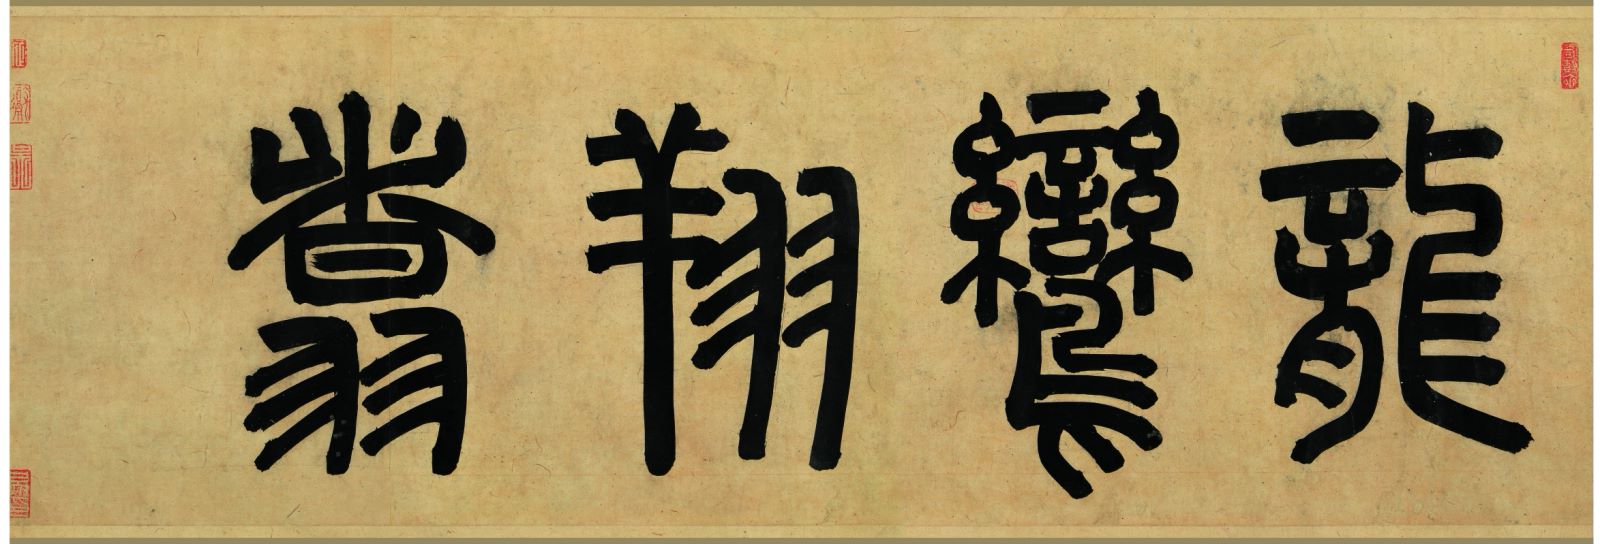 龍鸞翔翥